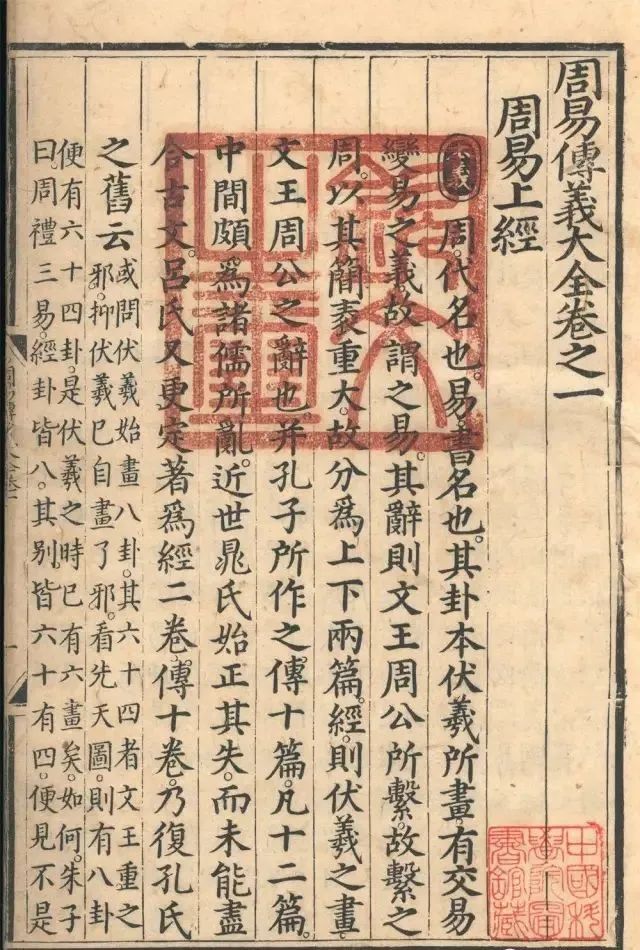 周易傳義大全卷之一
周易上經
本義 周。代名也。易。書名也。其卦本伏羲所畫。有交易
變易之義。故謂之易。其辭則文王周公所繫。故繫之
周。以其簡袠重大。故分爲上下兩篇。經則伏羲之畫
文王周公之辭也。并孔子所作之傳十篇。凡十二篇。
中間頗爲諸儒所亂。近世晁氏始正其失。而未能盡
合古文。呂氏又更定著爲經二卷。傳十卷。乃復孔氏
之舊云
或問伏羲始畫八卦。其六十四者文王重之
邪。抑伏羲已自畫了邪。看先天圖。則有八卦
便有六十四卦。是伏羲之時已有六畫矣。如何。朱子
曰。周禮三易。經卦皆八。其別皆六十有四。便見不是
中國科
學院圖
書館藏